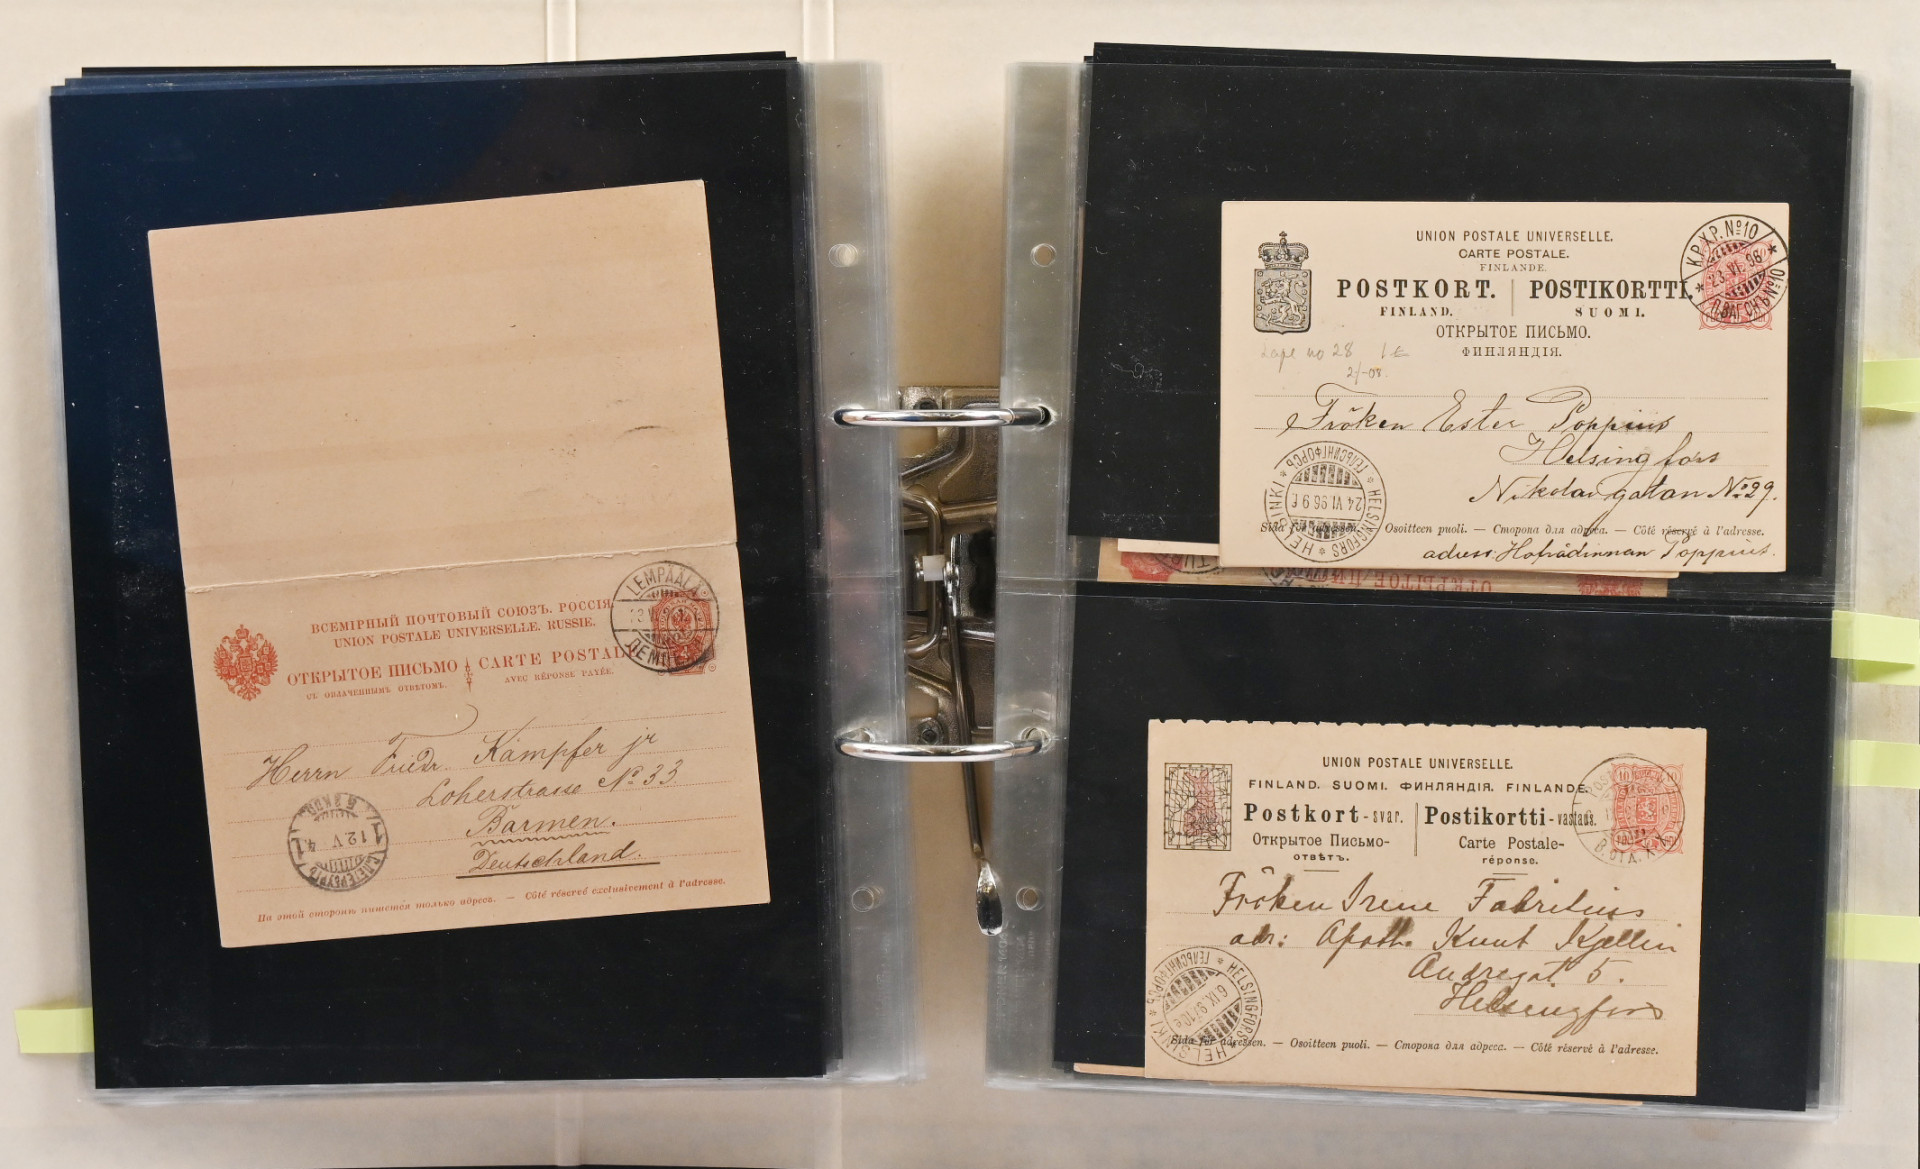 ВСЕМІРНЫЙ ПОЧТОВЫЙ СОЮЗЪ. РОССІЯ
UNION POSTALE UNIVERSELLE. RUSSIE.
ОТКРЫТОЕ ПИСЬМО
СЪ ОПЛАЧЕННЫМЪ ОТВѢТОМЪ.
CARTE POSTAL
AVEC RÉPONSE PAYÉE.
LEMPÄÄLÄ
Herrn Friedr. Kämpfer jr
Loherstrasse No 33
Barmen.
Deutschland.
12 V
На этой сторонѣ пишется только адресъ. — Côté réservé exclusivement à l'adresse.
UNION POSTALE UNIVERSELLE.
CARTE POSTALE.
FINLANDE.
POSTKORT. POSTIKORTTI.
FINLAND. SUOMI.
ОТКРЫТОЕ ПИСЬМО.
ФИНЛЯНДІЯ.
K.P.X.P. No 10
23.VI.96
П.ВАГОНЪ No 10
Fröken Ester Poppius
Helsingfors
Nikolaigatan No 29.
HELSINKI * HELSINGFORS * ГЕЛЬСИНГФОРСЪ
24 VI 96 9
Sida för adressen. — Osoitteen puoli. — Сторона для адреса. — Côté réservé à l'adresse.
adress: Hofrådinnan Poppius.
ОТКРЫТОЕ ПИ
UNION POSTALE UNIVERSELLE.
FINLAND. SUOMI. ФИНЛЯНДІЯ. FINLANDE.
Postkort-svar. Postikortti-vastaus.
Открытое Письмо-
отвѣтъ.
Carte Postale-
réponse.
10 10
Fröken Irene Fabritius
adr: Apoth. Knut Kjellin
Andregat 5.
Helsingfors
HELSINKI * HELSINGFORS * ГЕЛЬСИНГФОРСЪ
Sida för adressen. — Osoitteen puoli. — Сторона для адреса. — Côté réservé à l'adresse.